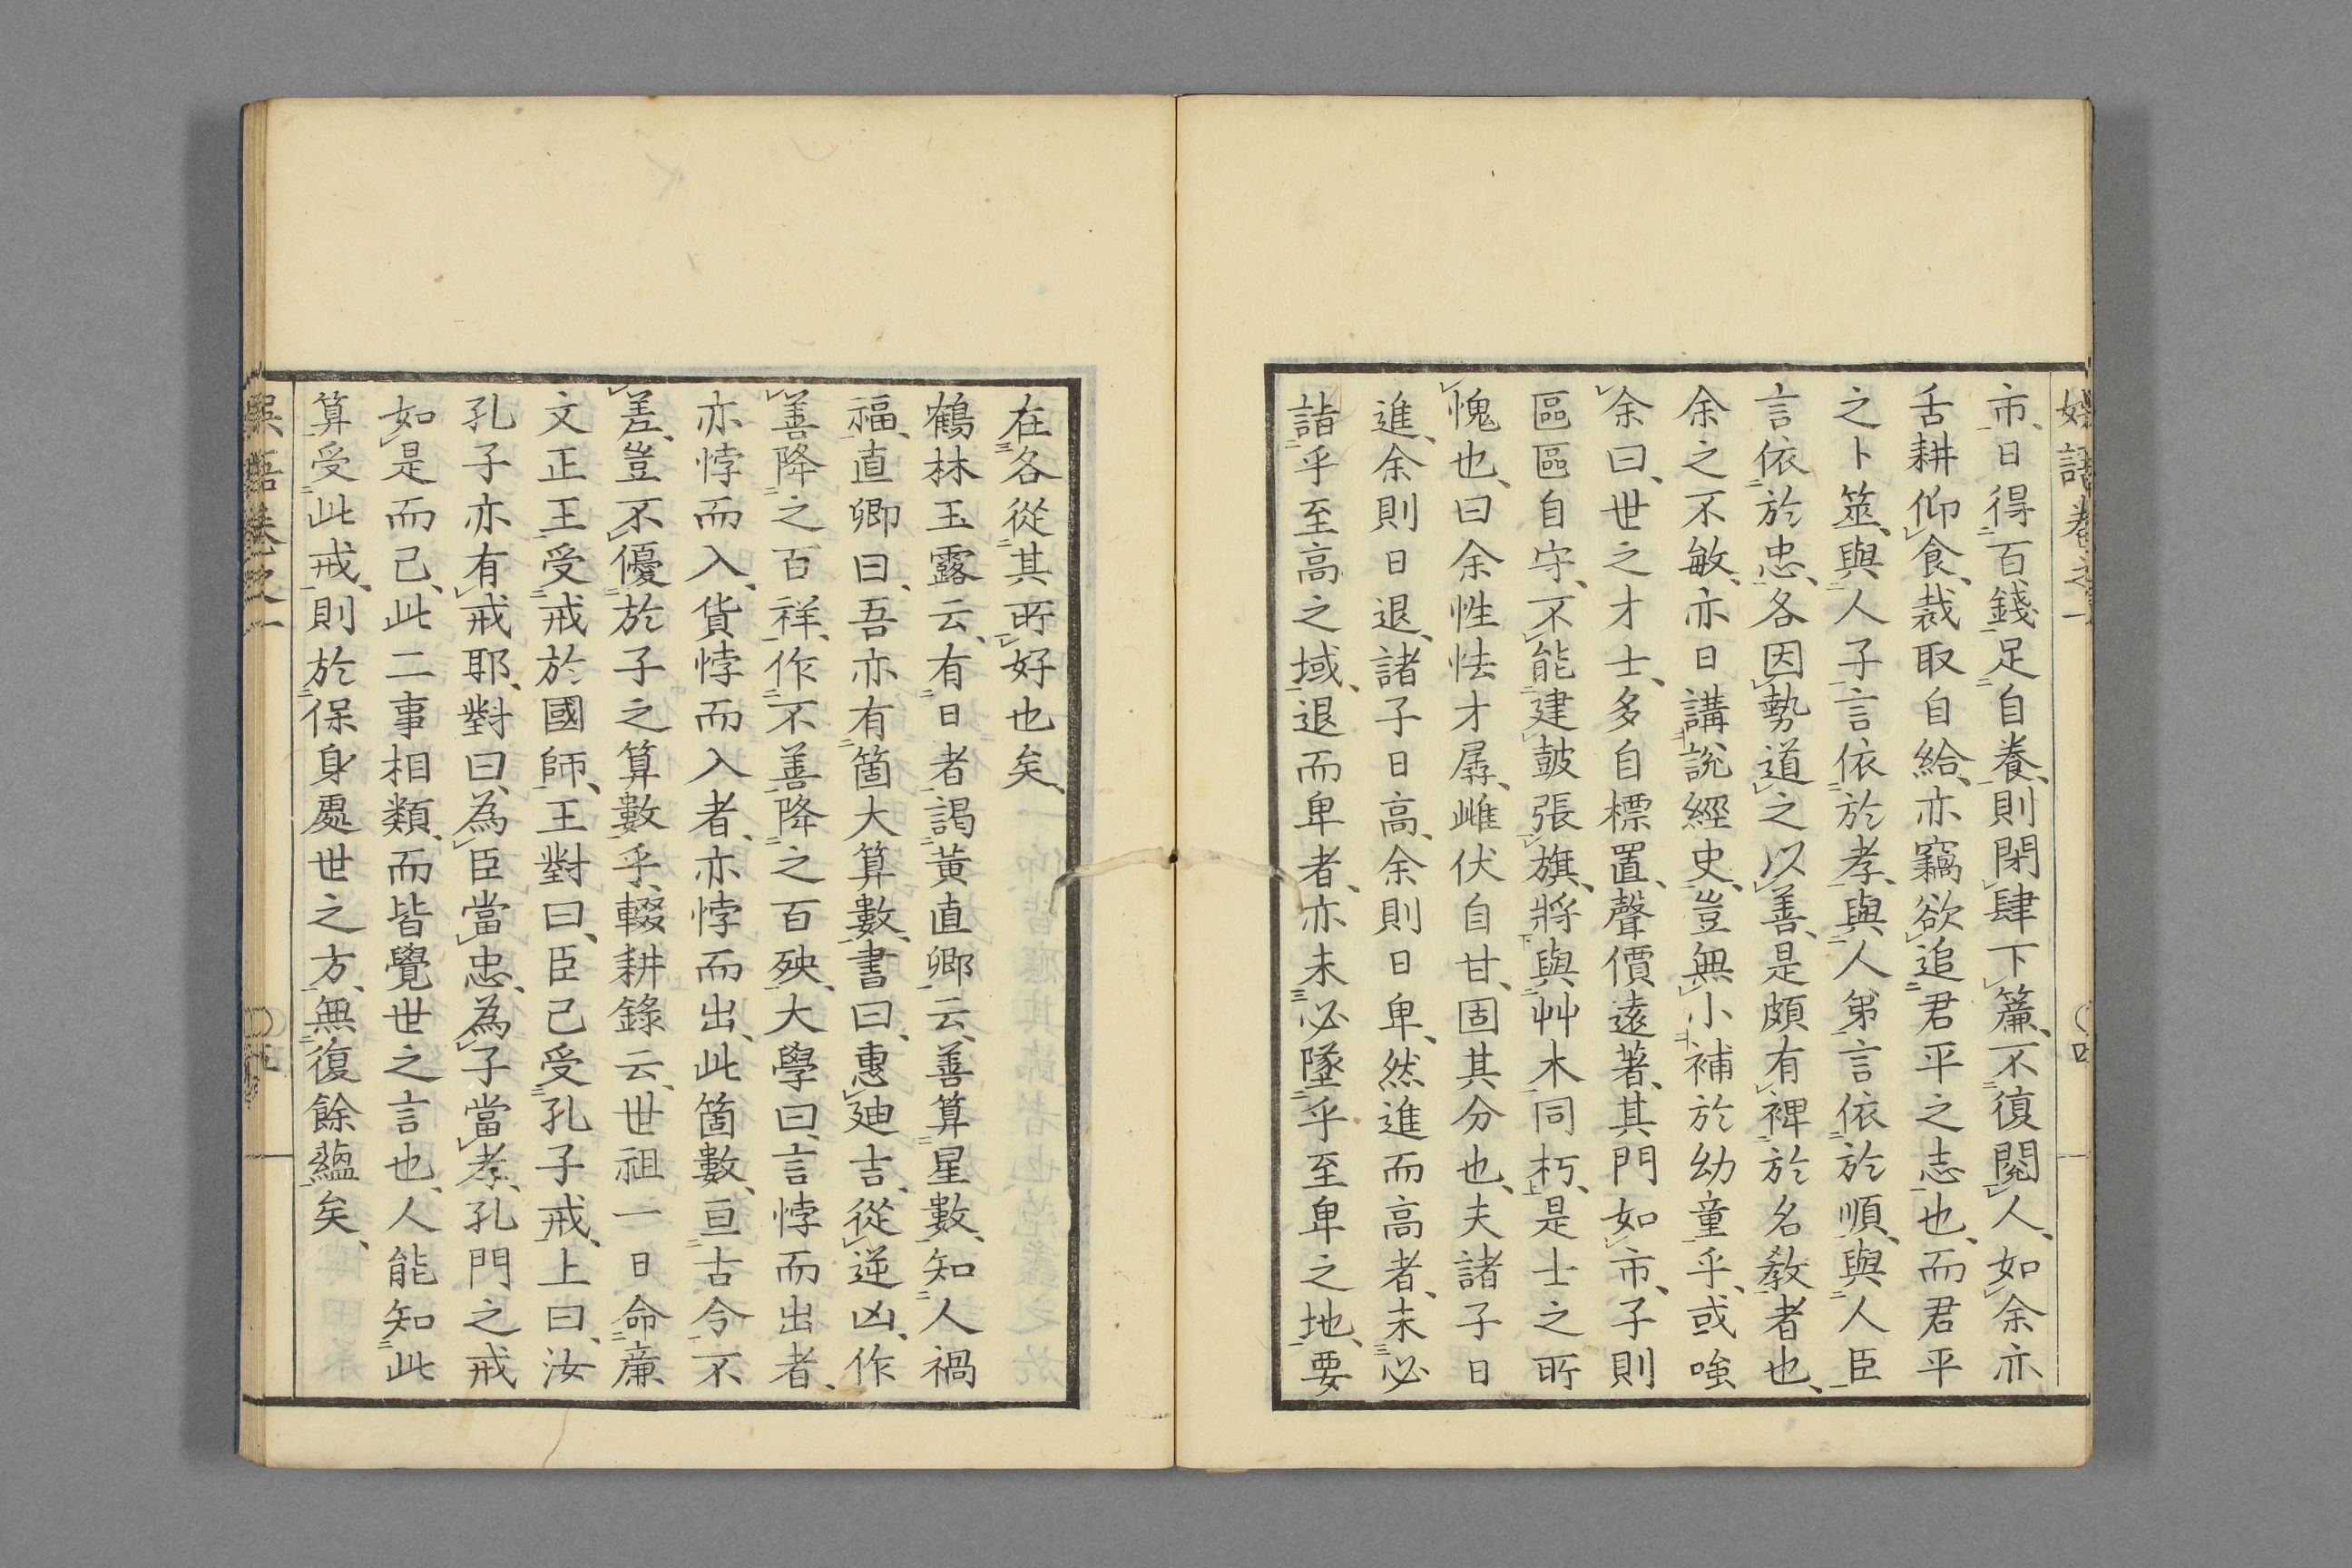 市、日得百錢足自養、則閉肆下簾、不復閱人、如余亦
舌耕仰食、裁取自給、亦竊欲追君平之志也、而君平
之卜筮、與人子言依於孝、與人弟言依於順、與人臣
言依於忠、各因勢道之以善、是頗有裨於名教者也、
余之不敏、亦日講說經史、豈無小補於幼童乎、或嗤
余曰、世之才士、多自標置、聲價遠著、其門如市、子則
區區自守、不能建鼓張旗、將與艸木同朽、是士之所
愧也、曰余性怯才孱、雌伏自甘、固其分也、夫諸子日
進、余則日退、諸子日高、余則日卑、然進而高者、未必
詣乎至高之域、退而卑者、亦未必墜乎至卑之地、要
在各從其所好也矣、
鶴林玉露云、有日者謁黃直卿云、善算星數、知人禍
福、直卿曰、吾亦有箇大算數、書曰、惠迪吉、從逆凶、作
善降之百祥、作不善降之百殃、大學曰、言悖而出者、
亦悖而入、貨悖而入者、亦悖而出、此箇數、亘古今不
差、豈不優於子之算數乎、輟耕錄云、世祖一日命廉
文正王受戒於國師、王對曰、臣已受孔子戒、上曰、汝
孔子亦有戒耶、對曰、為臣當忠、為子當孝、孔門之戒
如是而已、此二事相類、而皆覺世之言也、人能知此
算受此戒、則於保身處世之方、無復餘蘊矣、